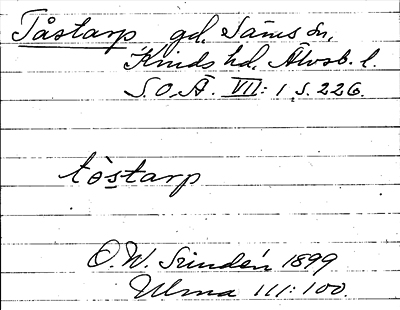 Tåstarp gd, Säms sn,
Kinds hd, Älvsb. l.
S.O.Ä. VII: 1, s. 226.
tòstarp
O. W. Sundén 1899
Ulma 111: 100.